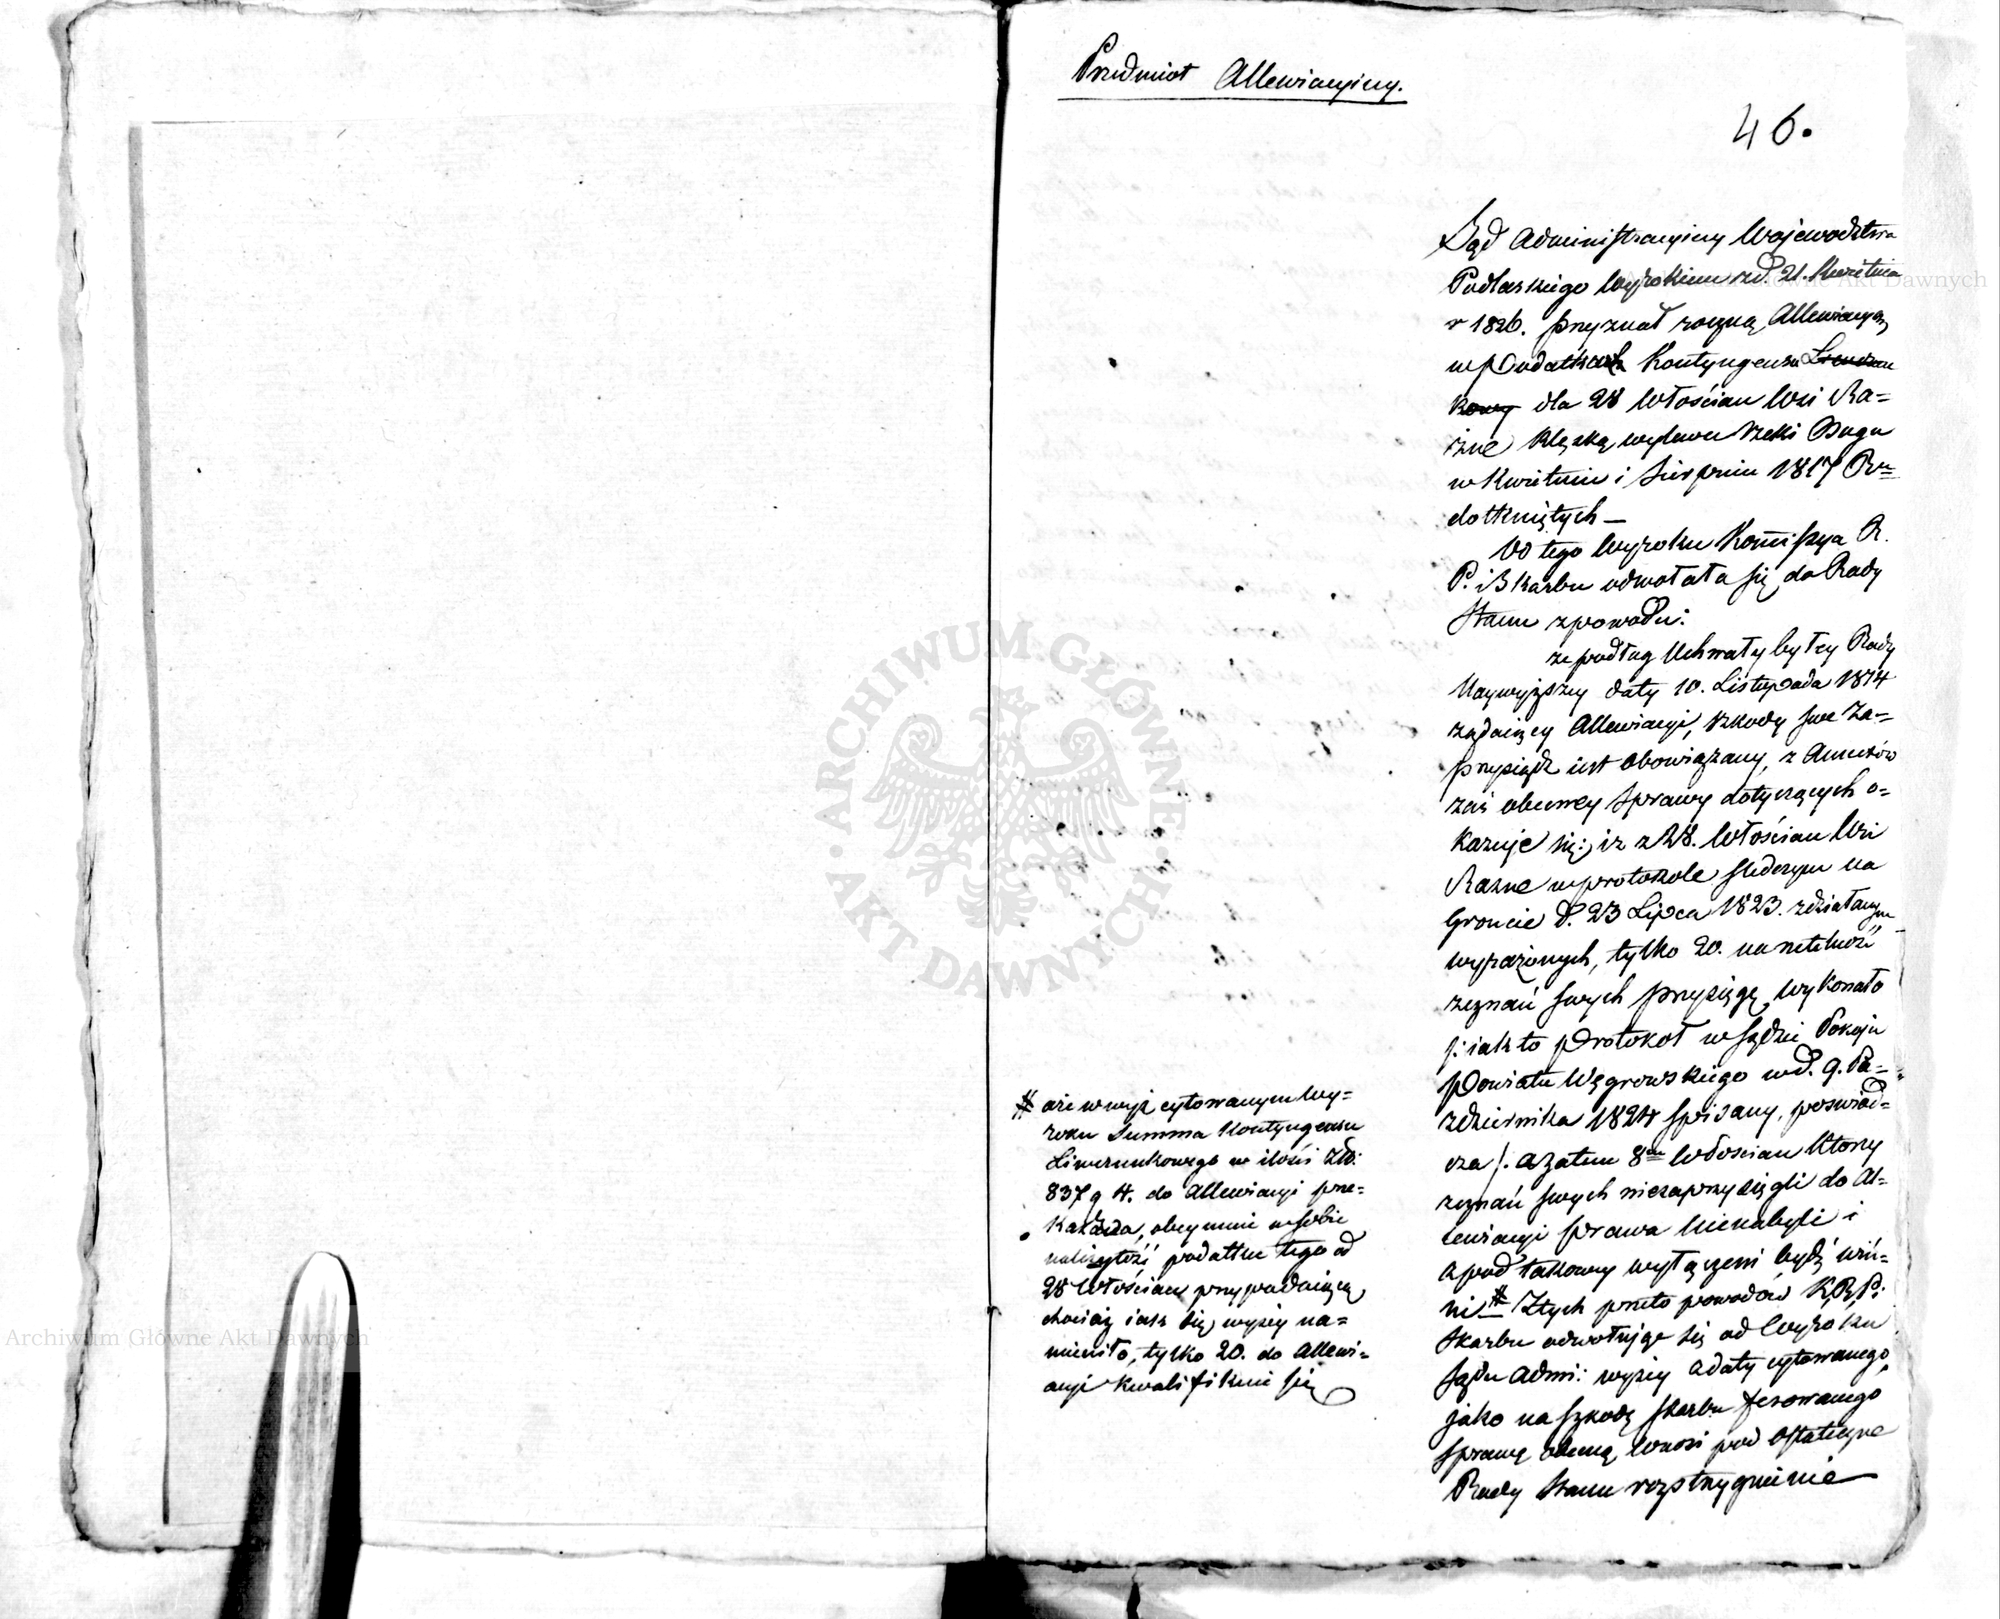 Przedmiot Allewiacyiny.
46.
Sąd Administracyiny Województwa
Podlaskiego Wyrokiem z d. 21. Kwietnia
r 1826. przyznał roczną Allewiacyą
w Podatkach Kontyngensu Liweran
kowy dla 28 Włościan Wsi Ra=
żne klęską wylewu Rzeki Buga
w Kwietniu i Sierpniu 1817 R.
dotkniętych —
Od tego Wyroku Kommissya R.
P. i Skarbu odwołała się do Rady
Stanu z powodu:
że podług Uchwały byłey Rady
Naywyższey daty 10. Listopada 1814
żądaiący Allewiacyi, szkody swe za=
przysiądz iest obowiązany, z Annexów
zaś obecney sprawy dotyczących o=
kazuje się: iż z 28. Włościan Wsi
Rażne w protokole śledczym na
Gruncie d. 23 Lipca 1823. zdziałanym
wyrażonych, tylko 20. na rzetelność
zeznań swych przysięgę wykonało
/: iak to Protokoł w Sądzie Pokoju
Powiatu Węgrowskiego w d. 9. Pa=
zdziernika 1824 spisany, poświad=
cza /. a zatem 8m Włościan ktorzy
zeznań swych niezaprzysięgli do Al=
lewiacyi prawa nienabyli i
z pod takowey wyłączeni bydź win=
ni # Z tych przeto powodów K.R.P.
Skarbu odwołując się od Wyroku
Sądu Admi: wyżey z daty cytowanego,
jako na szkodę Skarbu ferowanego
sprawę obecną wnosi pod ostateczne
Rady Stanu rozstrzygnienie
# oże w wyż cytowanym Wy=
roku Summa Kontyngensu
Liwerunkowego w ilości Złt:
837 g 4. do Allewiacyi prze=
kazana, obeymuie w sobie
należytość podatku tego od
28 Włościan przypadaiącą
chociaż iak się wyżey na=
mieniło, tylko 20. do Allewi=
acyi kwalifikuie się